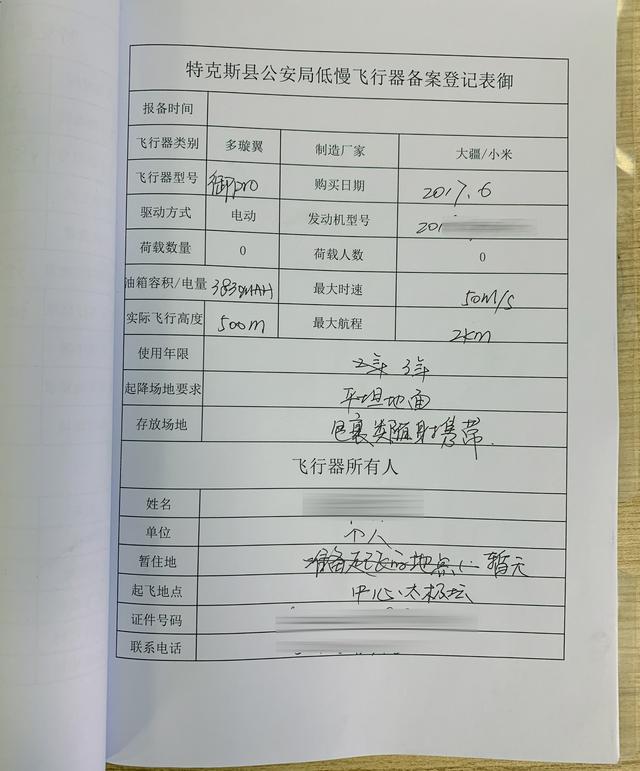 特克斯县公安局低慢飞行器备案登记表御
报备时间
飞行器类别 多璇翼 制造厂家 大疆/小米
飞行器型号 御pro 购买日期 2017.6
驱动方式 电动 发动机型号 201
荷载数量 0 荷载人数 0
油箱容积/电量 3830MAH 最大时速 50M/S
实际飞行高度 500m 最大航程 2km
使用年限 2年 3年
起降场地要求 平坦地面
存放场地 包裹类随身携带.
飞行器所有人
姓名
单位 个人
暂住地 准备起飞的地点 暂无
起飞地点 中心太极坛
证件号码
联系电话